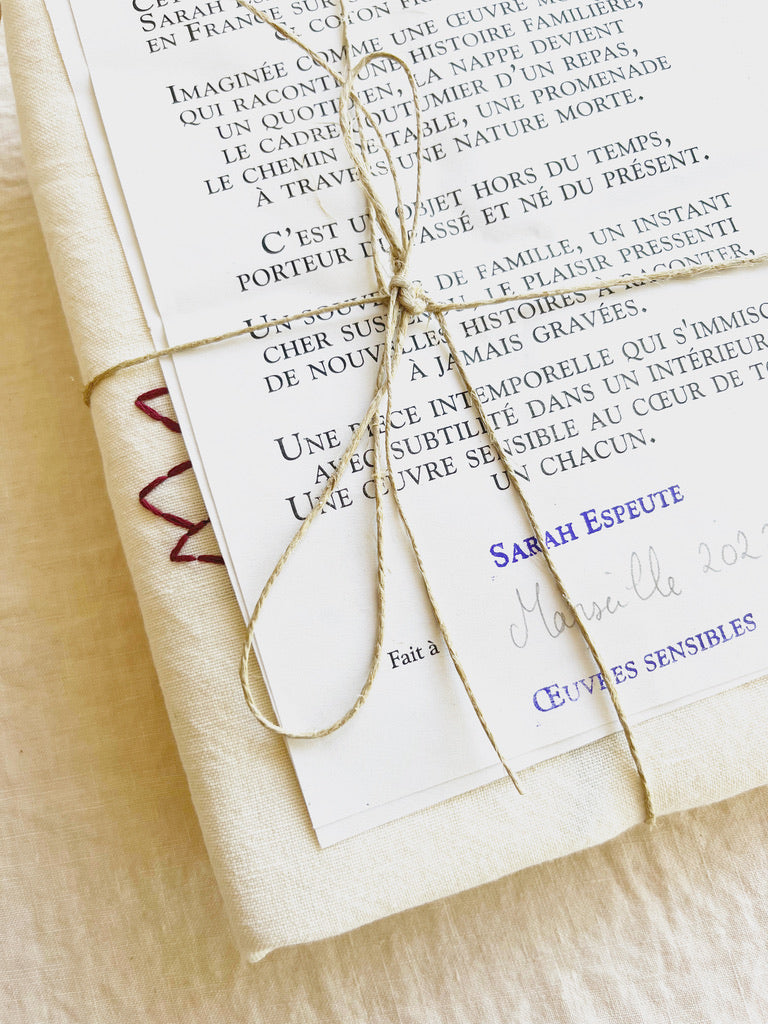 Sarah
en France sur
& coton
Imaginée comme une œuvre
qui raconte une histoire familière,
un quotidien, la nappe devient
le cadre coutumier d'un repas,
le chemin de table, une promenade
à travers une nature morte.
C'est un objet hors du temps,
porteur du passé et né du présent.
Un souvenir de famille, un instant
cher suspendu, le plaisir pressenti
de nouvelles histoires à raconter,
à jamais gravées.
Une pièce intemporelle qui s'immisce
avec subtilité dans un intérieur
Une œuvre sensible au cœur de
un chacun.
Sarah Espeute
Fait à Marseille
Œuvres sensibles